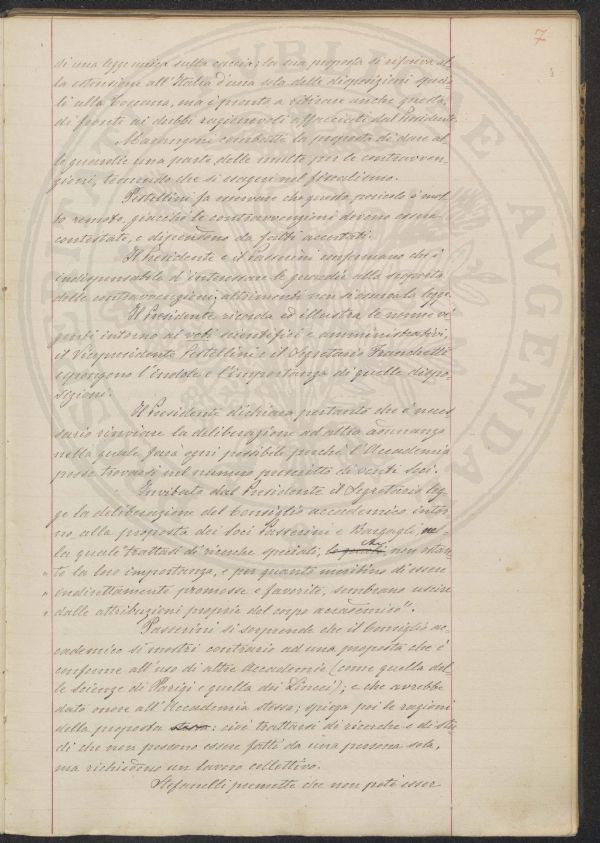 7
di una legge unica sulla caccia; la sua proposta si riferiva al-
la estensione all'Italia d'una sola delle disposizioni specia-
li alla Toscana, ma è pronto a ritirare anche questa,
di fronte ai dubbi ragionevoli affacciati dal Presidente.
Marangoni combatte la proposta di dare al-
le guardie una parte delle multe per le contravven-
zioni, temendo che si esageri nel fiscalismo.
Pestellini fa osservare che questo pericolo è mol-
to remoto, giacchè le contravvenzioni devono essere
contestate, e dipendono da fatti accertati.
Il Presidente e il Passerini confermano che è
indispensabile d'interessare le guardie alla scoperta
delle contravvenzioni; altrimenti non si osserva la legge.
Il Presidente ricorda ed illustra le norme vi-
genti intorno ai voti scientifici e amministrativi,
il Vicepresidente Pestellini e il Segretario Franchetti
espongono l'indole e l'importanza di quelle dispo-
sizioni.
Il Presidente dichiara pertanto che è neces
sario rinviare la deliberazione ad altra adunanza
nella quale farà ogni possibile perchè l'Accademia
possa trovarsi nel numero prescritto di venti Soci.
Invitato dal Presidente il Segretario leg-
ge la deliberazione del Consiglio accademico intor
no alla proposta dei Soci Passerini e Bargagli, nel-
la quale trattasi di ricerche speciali, che non ostan
" te la loro importanza, e per quanto meritino di essere
" indirettamente promosse e favorite, sembrano uscire
" dalle attribuzioni proprie del corpo accademico".
Passerini si sorprende che il Consiglio ac-
cademico si mostri contrario ad una proposta che è
conforme all'uso di altre Accademie (come quella del-
le Scienze di Parigi e quella dei Lincei); e che avrebbe
dato onore all'Accademia stessa; spiega poi le ragioni
della proposta: cioè trattarsi di ricerche e di stu
di che non possono essere fatti da una persona sola,
ma richiedono un lavoro collettivo.
Stefanelli premette che non potè esser